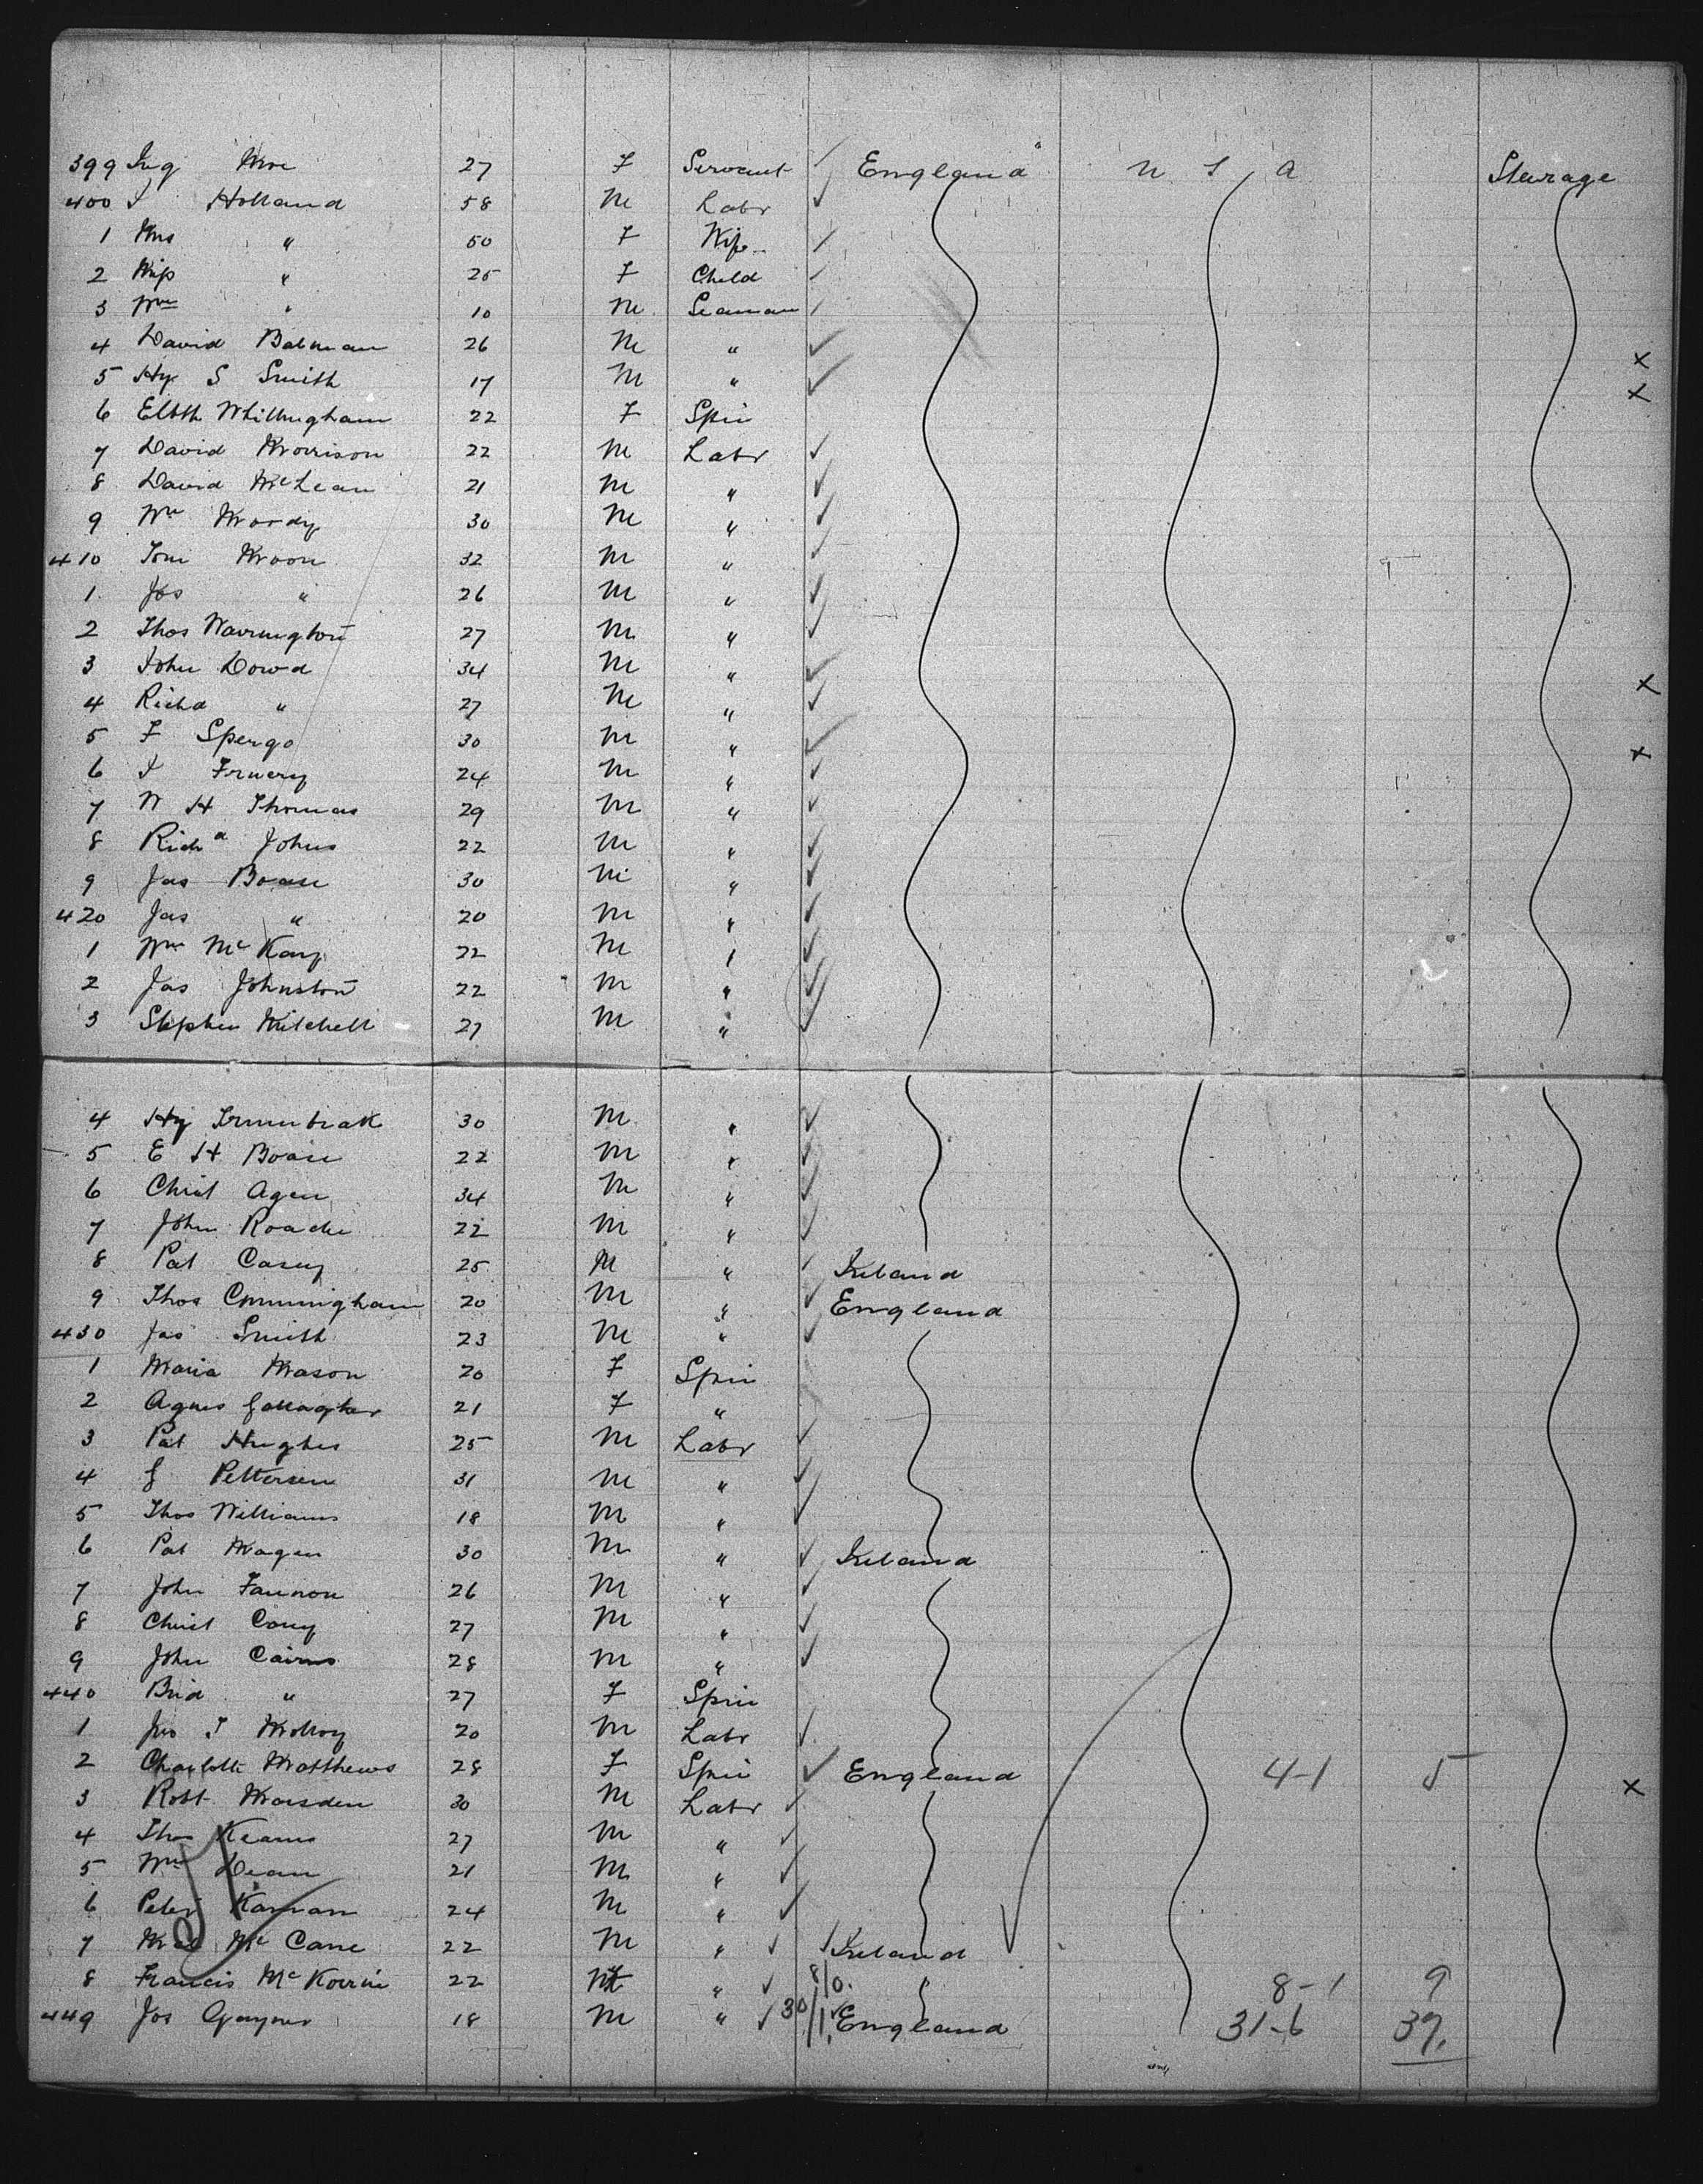 399 27 F Servant England U S A Steerage
400 Holland 58 M Labr
1 Mrs " 50 F Wife
2 " 25 F Child
3 Wm " 10 M Seaman
4 David Batman 26 M "
5 Hy S Smith 17 M "
6 Elbth Whillingham 22 F Spin
7 David Morrison 22 M Labr
8 David McLean 21 M "
9 Wm Moody 30 M "
410 Tom Moon 32 M "
1 Jos " 26 M "
2 Thos Warrington 27 M "
3 John Dowd 34 M "
4 Richd " 27 M "
5 F Spergo 30 M "
6 24 M "
7 W H Thomas 29 M "
8 Richd Johns 22 M "
9 Jas Boase 30 M "
420 Jas " 20 M "
1 Wm McKay 22 M "
2 Jas Johnston 22 M "
3 Stephen Mitchell 27 M "
4 Hy 30 M "
5 E H Boase 22 M "
6 Christ Agen 34 M "
7 John Roache 22 M "
8 Pat Casey 25 M " Ireland
9 Thos Cunningham 20 M " England
430 Jas Smith 23 M "
1 Maria Mason 20 F Spin
2 Agnes Gallagher 21 F "
3 Pat Hughes 25 M Labr
4 G Pettersen 31 M "
5 Thos Williams 18 M "
6 Pat Magan 30 M " Ireland
7 John Fannon 26 M "
8 Christ 27 M "
9 John Cairns 28 M "
440 Brid " 27 F Spin
1 Jno J Molloy 20 M Labr
2 Charlotte Matthews 28 F Spin England 4-1 5
3 Robt Marsden 30 M Labr
4 Thos Kearns 27 M "
5 Wm Dean 21 M "
6 Peter Kannan 24 M "
7 Mc Cann 22 M " Ireland
8 Francis 22 " 8/0. 8-1 9
449 Jos Gaynor 18 M " 30/1. England 31-6 37.